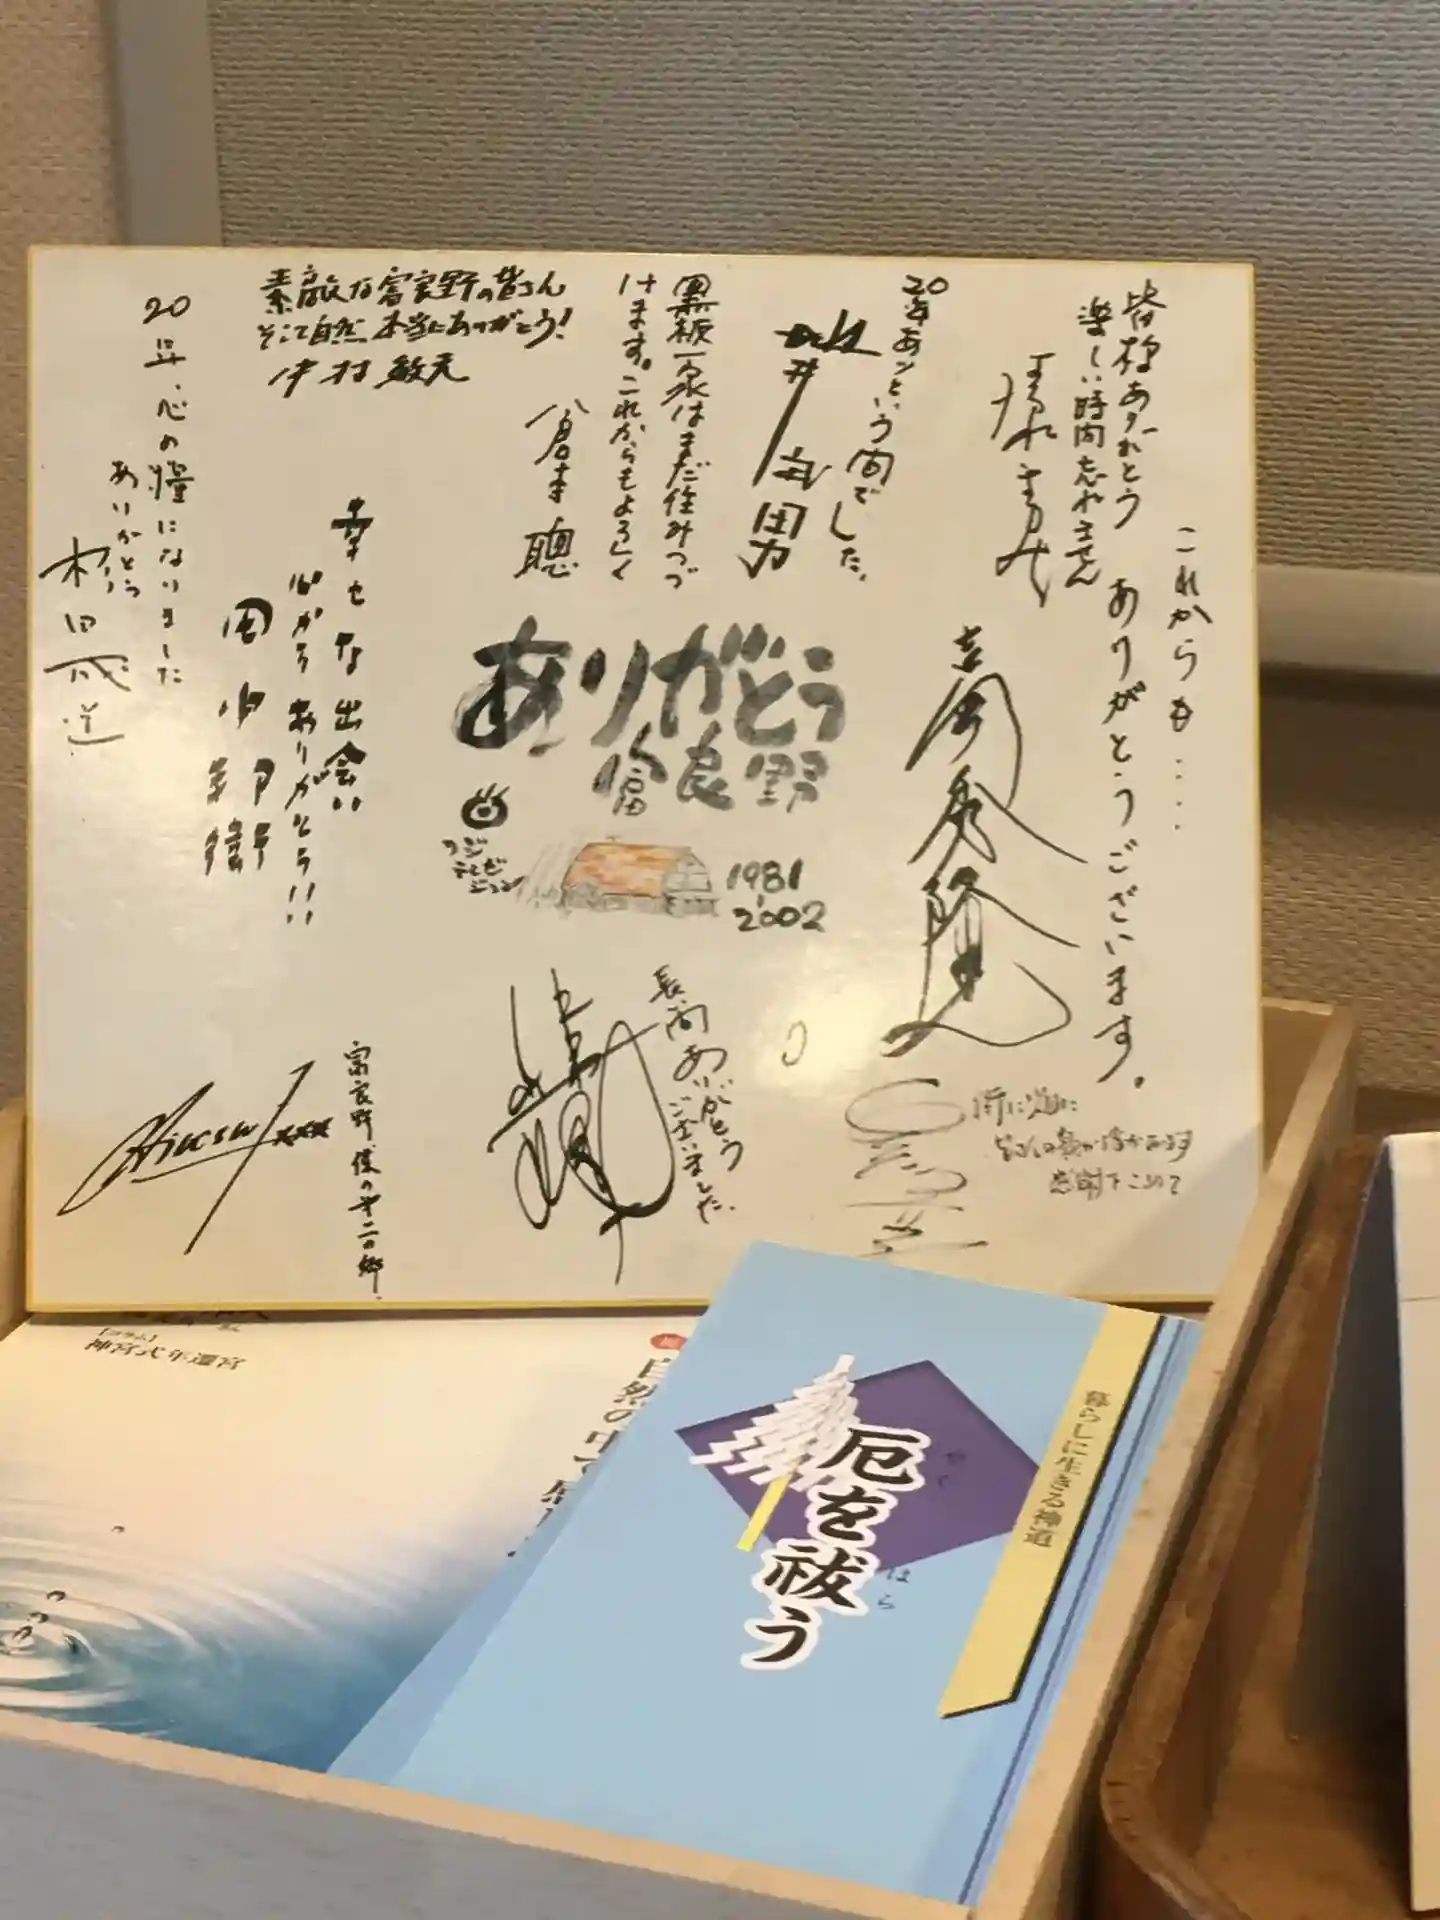 これからも‥‥
ありがとうございます。
皆様ありがとう
楽しい時間忘れません
20年あッという間でした。
地井武男
黒板一家はまだ住みつづ
けます。これからもよろしく
倉本聰
素敵な富良野の皆さん
そして自然、本当にありがとう!
中村敏夫
20年、心の糧になりました
ありがとう
杉田成道
幸せな出会い
心から ありがとう!!
田中邦衛
ありがとう
富良野
フジ
テレビ
ジョン
1981
2002
吉岡秀隆
長い間ありがとう
ございました。
富良野 僕の第二の郷
感謝をこめて
[コラム]
神宮式年遷宮
自然の中で
暮らしに生きる神道
厄を祓う
やく
はら